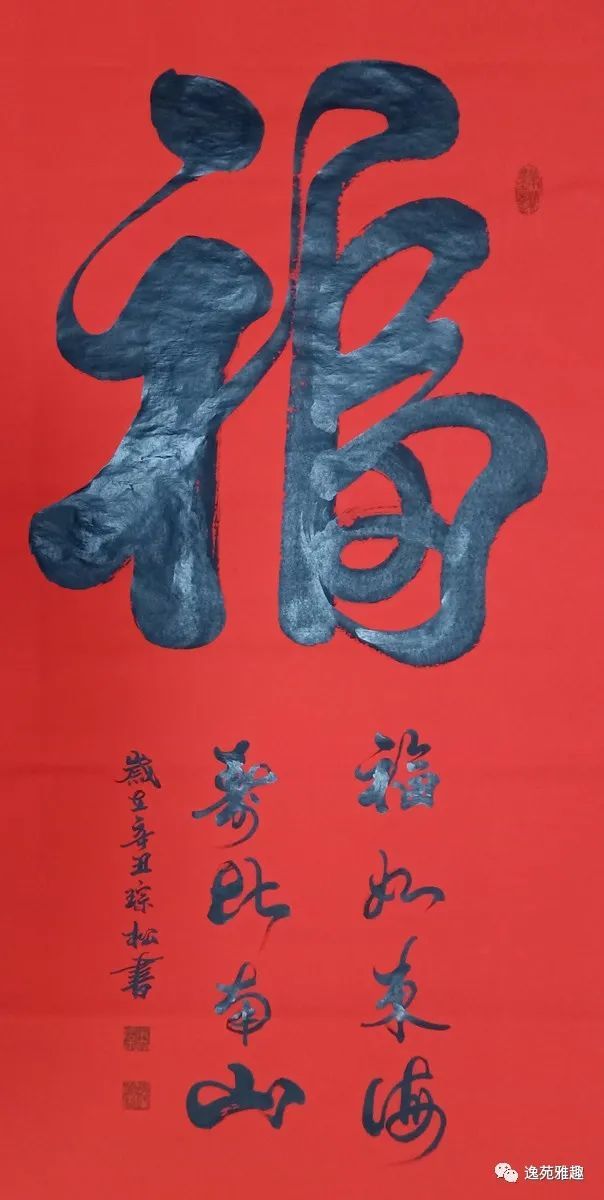 福
福如东海
寿比南山
岁在辛丑琮松書
逸苑雅趣